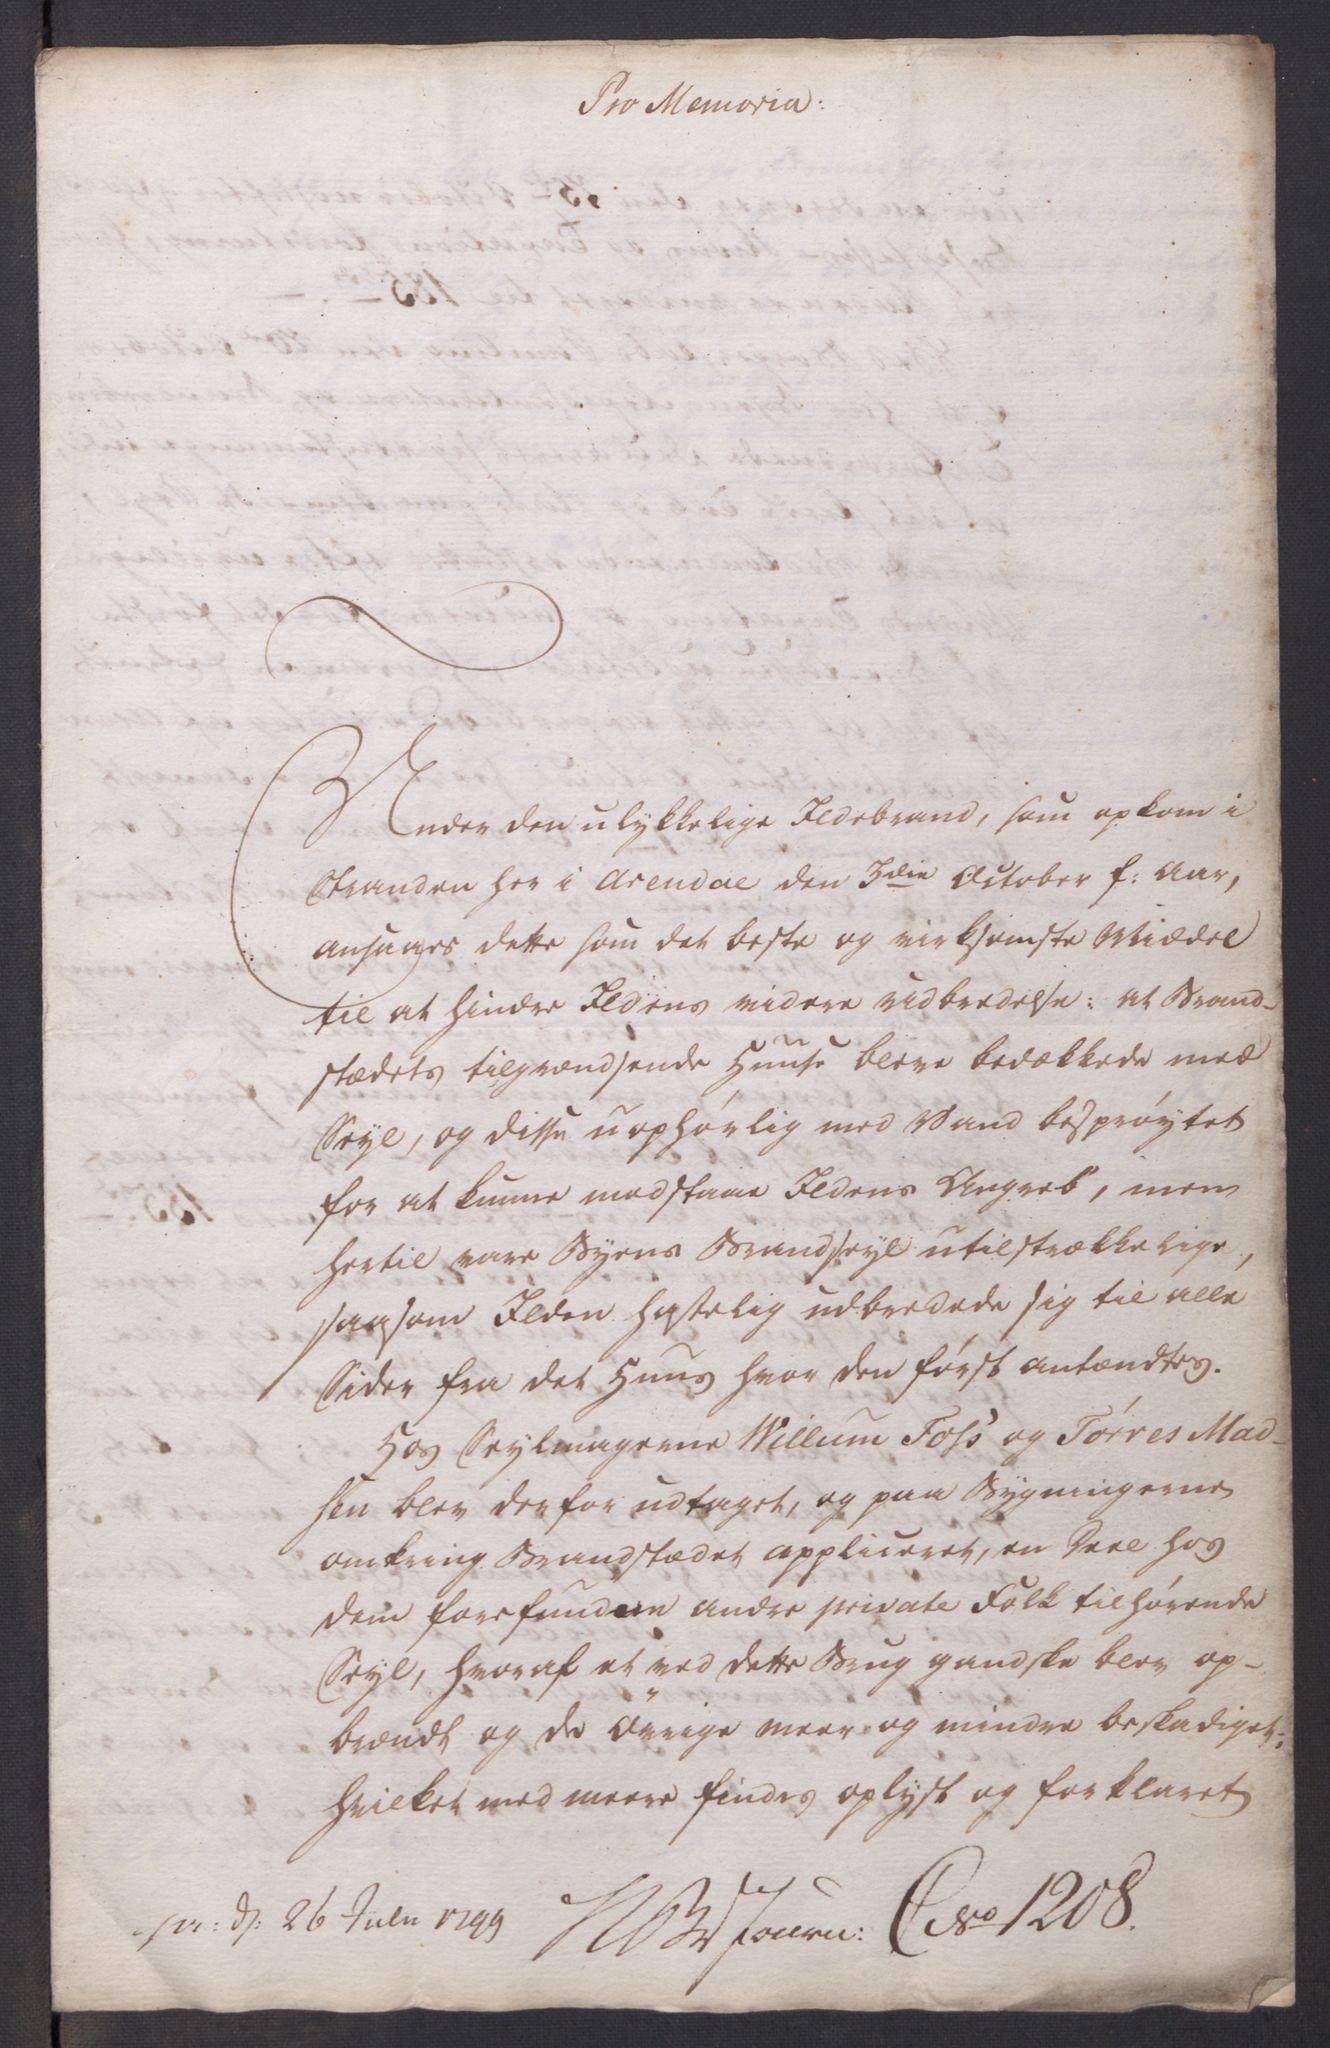 Pro Memoria:
Under den ulykkelige Ildebrand, som opkom i
Stranden her i Arendal den 3die October f: Aar,
ansaaes dette som det beste og virksomste Middel
til at hindre Ildens videre udbredelse: at Brand-
stædets tilgrændsende Huuse bleve bedækkede med
Seyl, og disse uophørlig med Vand besprøytet
for at kunne modstaae Ildens Angreb, men
hertil vare Byens Brandseyl utilstrækkelige,
saasom Ilden hastelig udbredede sig til alle
Sider fra det Huus hvor den først antændtes.
Hos Seylmagerne Willum Foss og Tørres Mad-
sen blev derfor udtaget, og paa Bygningerne
omkring Brandstædet appliceret, en Deel hos
dem forefunden andre private Folk tilhørende
Seyl, hvoraf et ved dette Brug gandske blev op-
brændt og de Øvrige meer og mindre beskadiget:
hvilket med meere findes oplyst og forklaret
pr: d: 26 Julii 1799 Journ: C No 1208.